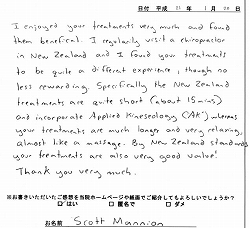 日付 平成 21 年 1 月 20 日
I enjoyed your treatments very much and found
them benefical. I regularily visit a chiropractor
in New Zealand and I found your treatments
to be quite a different experience, though no
less rewarding. Specifically the New Zealand
treatments are quite short (about 15 mins)
and incorporate Applied Kineseology ('AK') whereas
your treatments are much longer and very relaxing,
almost like a massage. By New Zealand standards
your treatments are also very good value!
Thank you very much.
※お書きいただいたご感想を当院ホームページや紙面でご紹介してもよろしいでしょうか?
□はい □匿名で □ダメ
お名前 Scott Mannion